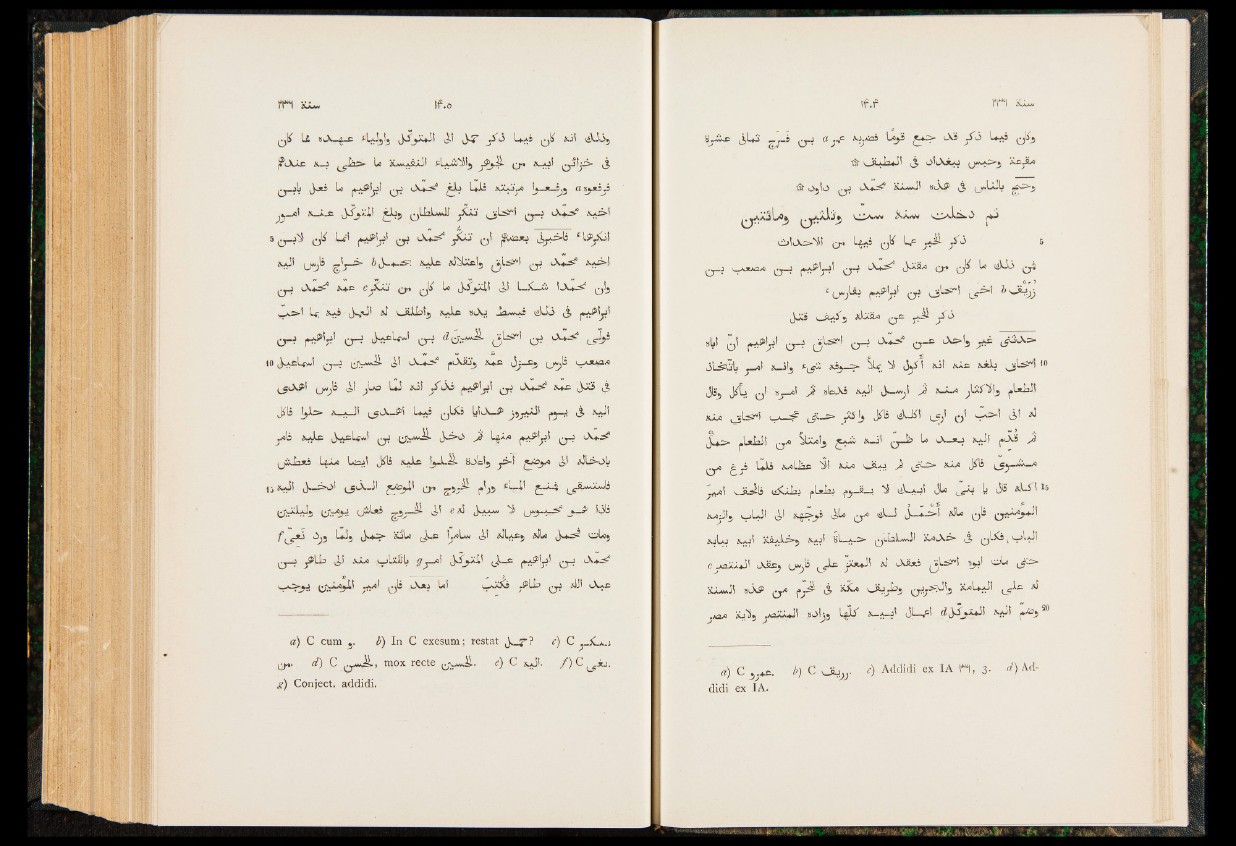 سنة ٢٣٦ ١٤٠٤
وكان فيما ذكر قد جمع قومًا فضربه عمر a بن فَرَج ثمانى عشرة
مقرعة وحبس ببغداذ فى المطبق ۞
وحجّ بالناس فى هذه السنة محمّد بن داود ۞
ثم دخلت سنة ستّ وثلثين ومائتين
ذكر الخبر عما كان فيها من الاحداث 5
فمن ذلك ما كان من مقتل محمّد بن ابراهيم بن مصعب بن
زُرَيْق b اخى اسحاق بن ابراهيم بفارس c
ذكر الخبر عن مقتله وكيف قتل
حدّثنى غير واحد عن محمّد بن اسحاق بن ابراهيم أنّ اباه
10 اسحاق بلغه عنه انه أكول لا يملأ جوفه شىء وانه امر باتّخاذ
الطعام والاكثار منه ثم ارسل اليه فدعاه ثم امره ان يأكل وقال
له انى احبّ ان ارى اكلك فاكل واكثر حتى عجب اسحاق منه
ثم قُدّم اليه بعد ما ظنّ انه شبع وامتلأ من الطعام حمَل
مشوىّ فاكل منه حتى لم يبق منه الّا عظامه فلمّا فرغ من
15 اكله قال يا بنىّ مال ابيك لا يقوم بطعام بطنك فالحق امير
المؤمنين فان ماله أَحْمَل لك من مالى فوجّهه الى الباب والزمه
الباب، فكان فى خدمة السلطان حياة ابيه وخليفة ابيه ببابه
حتى مات ابوه اسحاق فعقد له المعتزّ على فارس وعقد المنتصر c
له على اليمامة والبحرين وطريق مكّة فى المحرّم من هذه السنة
20 وضمّ اليه المتوكّل d اعمال ابيه كلّها وزاده المنتصر ولاية مصر
a) C عمرو. b) C رزيق. c) Addidi ex IA ٣٦, 3. d) Ad-
didi ex IA.
سنة ٢٣٦ ١٤٠٥
وذلك انه كان فيما ذكر حمل الى المتوكّل واولياء عهده مما كان
فى خزائن ابيه من الجوهر والاشياء النفيسة ما حظى به عندهم
فرفعوه a ورفعوا مرتبته فلمّا بلغ محمّد بن ابراهيم ما فعل بابن
اخيه محمّد بن اسحاق تنكّر للسلطان وبلغ المتوكّل عنه امور
انكرها، فاخبرنى بعضهم ان تنكّر محمّد بن ابراهيم انما كان لابن 5
اخيه محمّد بن اسحاق واعتلاله عليه بحمل b خراج فارس اليه
وان محمّدا شكا الى المتوكّل ما كان من تنكّر c عمّه محمّد بن
ابراهيم فى ذلك فبسط يده عليه واطلق له العمل فيه بما احبّ
فولّى محمّد بن اسحاق الحسين d بن اسماعيل بن ابراهيم بن
مصعب فارس وعزل عمّه وتقدّم محمّد الى الحسين بن اسماعيل 10
فى قتل عمّه محمّد بن ابراهيم فذكر انه لمّا صار الى فارس اهدى
اليه فى يوم النيروز هدايا فكان فيما اهدى اليه حلوا فاكل
محمّد بن ابراهيم منها ثم دخل الحسين بن اسماعيل عليه فامر
بادخاله الى موضع آخر واعادة الحلوا عليه فاكل ايضا منها فعطش
فاستسقى فمنع الماء ورام الخروج من الموضع الذى ادخل اليه 15
فاذا هو محبوس لا سبيل له e الى الخروج فعاش يومين وليلتين
ومات فحمل ماله وعياله الى سامرّا على مائة جمل ولمّا ورد نَعِىّ f
محمّد بن ابراهيم على المتوكّل امر g بالكتاب منه الى طاهر بن
عبد الله بن طاهر فكُتِبَ اما بعد فان امير المؤمنين يوجب
a) C cum و. b) In C exesum; restat حمل? c) C
من. d) C الحسن, mox recte الحسين. e) C اليه. f) C
g) Conject. addidi.